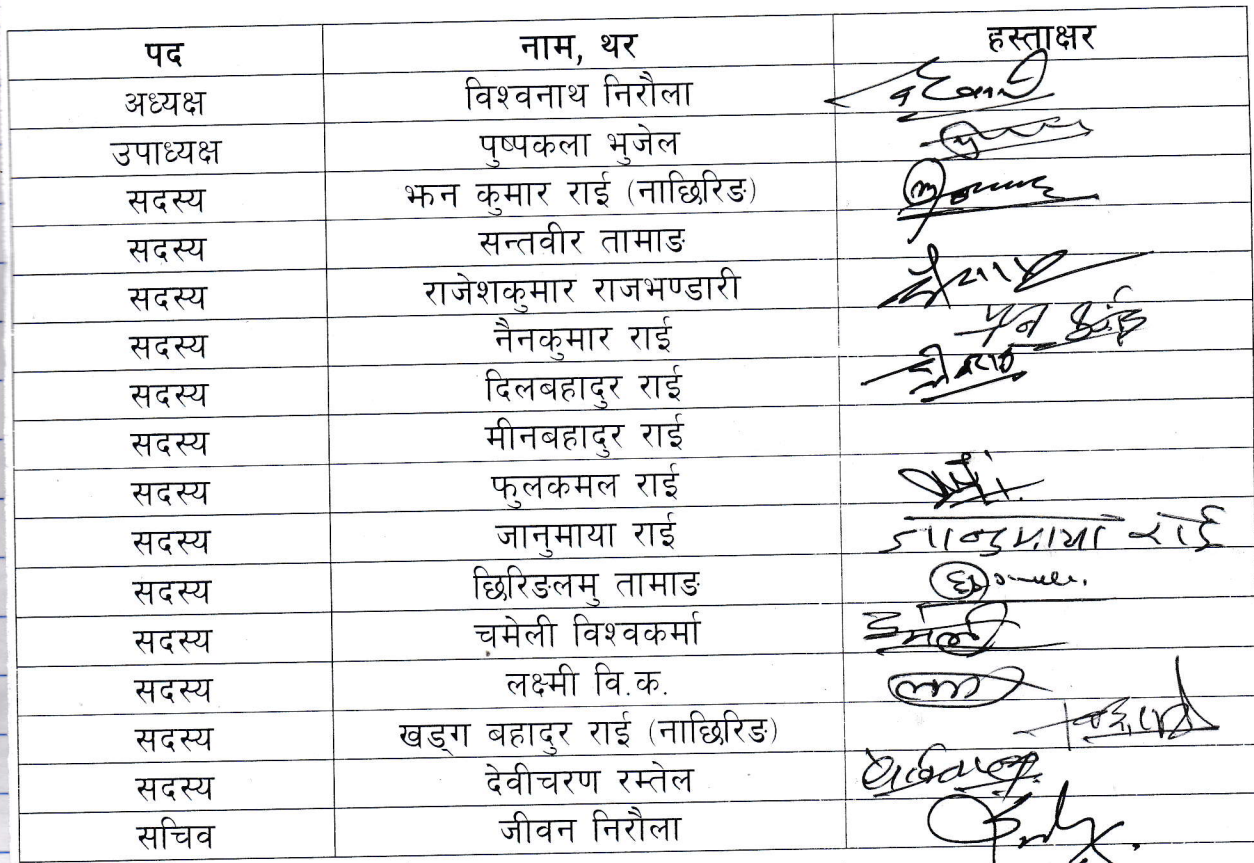 पद नाम, थर हस्ताक्षर
अध्यक्ष विश्वनाथ निरौला
उपाध्यक्ष पुष्पकला भुजेल
सदस्य झन कुमार राई (नाछिरिङ)
सदस्य सन्तवीर तामाङ
सदस्य राजेशकुमार राजभण्डारी
सदस्य नैनकुमार राई
सदस्य दिलबहादुर राई
सदस्य मीनबहादुर राई
सदस्य फुलकमल राई
सदस्य जानुमाया राई जानुमाया राई
सदस्य छिरिङलमु तामाङ
सदस्य चमेली विश्वकर्मा चमेली
सदस्य लक्ष्मी वि.क.
सदस्य खड्ग बहादुर राई (नाछिरिङ)
सदस्य देवीचरण रम्तेल
सचिव जीवन निरौला